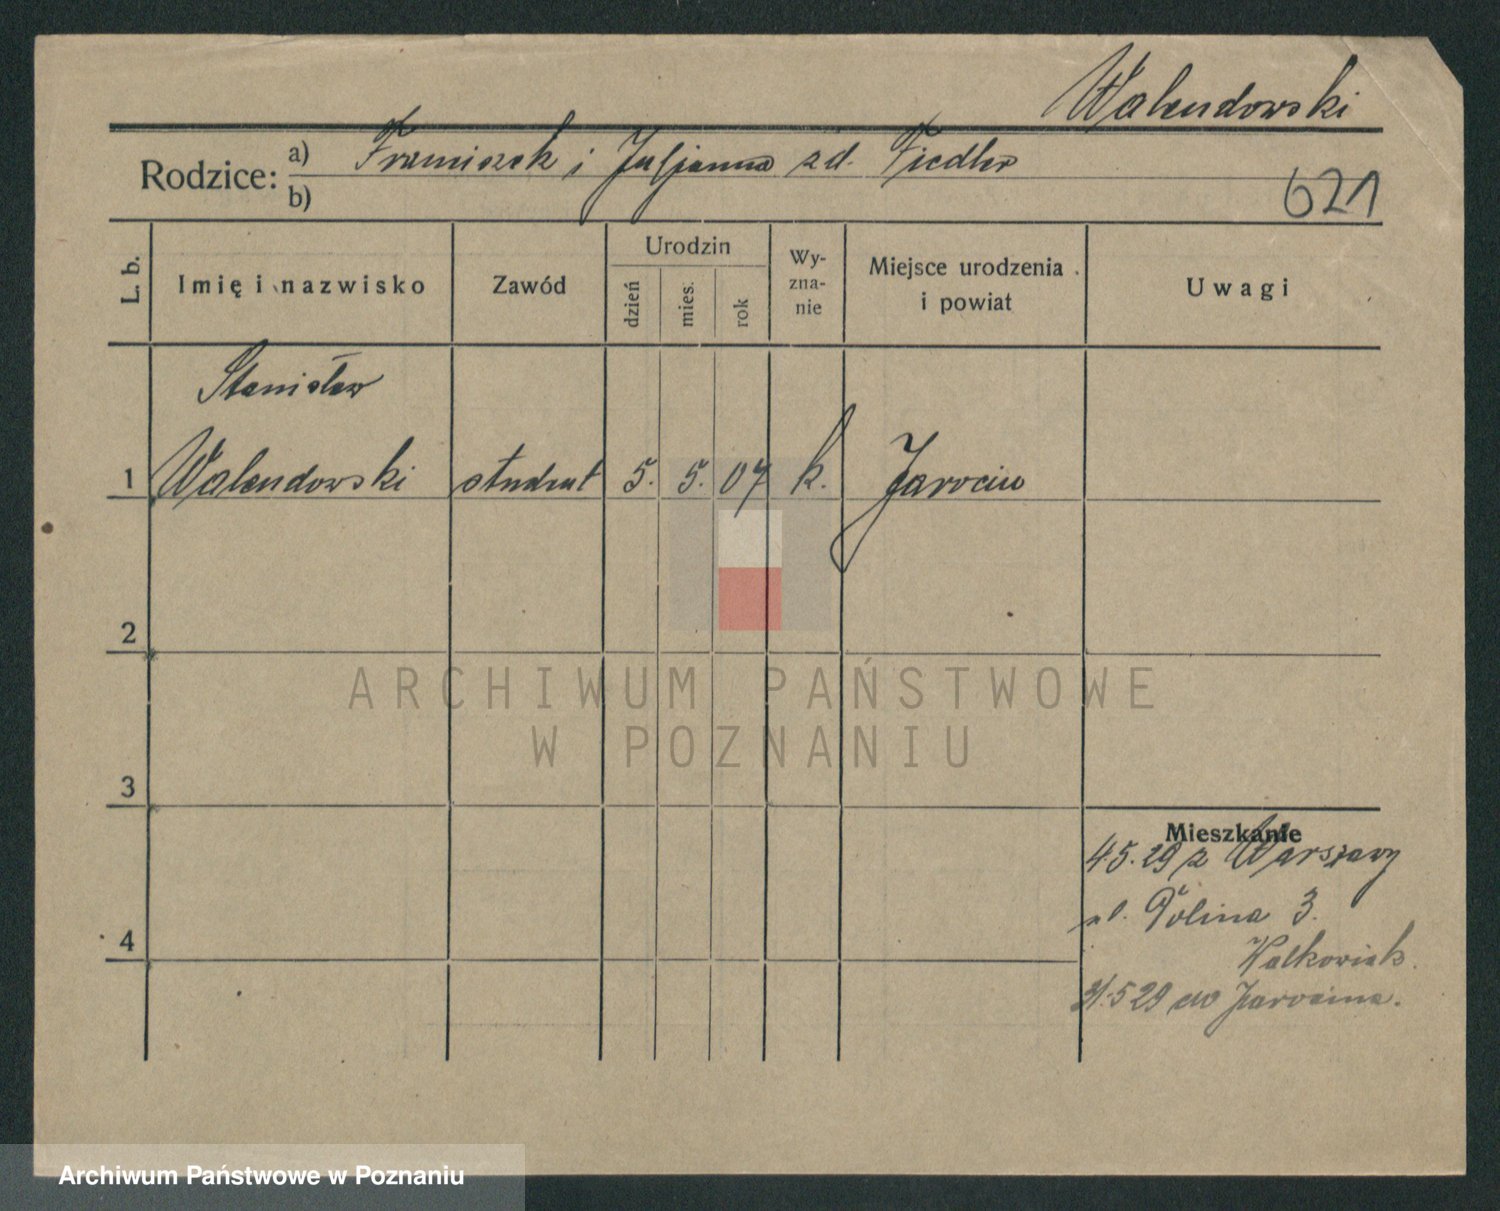 Walendowski
Rodzice: a) Franciszek i Juljanna zd. Fiedler
b)
621
L. b.
Imię i nazwisko
Zawód
Urodzin
dzień
mies.
rok
Wy-
zna-
nie
Miejsce urodzenia
i powiat
Uwagi
Stanisław
1 Walendowski student 5. 5. 07 k. Jarocin
2
3
4
Mieszkanie
4.5.29 z Warszawy
ul. Polna 3.
Walkowiak.
31.5 29 do Jarocina.
ARCHIWUM PAŃSTWOWE
W POZNANIU
Archiwum Państwowe w Poznaniu